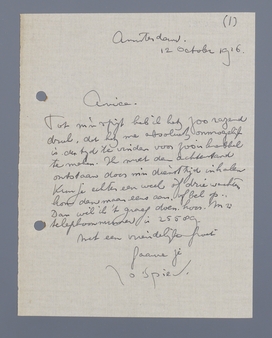 (1)
Amsterdam.
12 October 1926.
Amice.
Tot m'n spijt heb ik het zoo razend
druk, dat het me absoluut onmogelijk
is de tijd te vinden voor zoo'n babbel
te maken. Ik moet den achterstand
ontstaan door mijn diensttijd inhalen
Kun je echter een week of drie wachten
kom dan maar eens aan, of bel op.
Dan wil ik 't graag doen hoor. M'n
telephoonnummer is 25509.
Met een vriendelijken groet
gaarne je
Jo Spier.